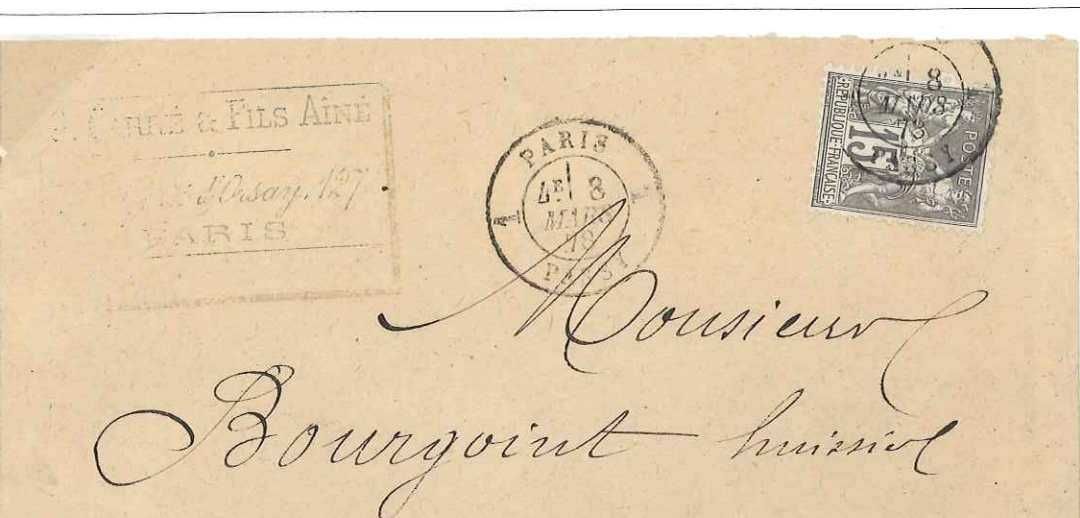 CARRÉ & FILS AÎNÉ
d'Orsay, 127
PARIS
PARIS
1 4E 8 1
MARS
78
PASSY
8
MARS
78
PASSY
RÉPUBLIQUE FRANÇAISE
15
POSTE
Monsieur
Bourgoint huissier